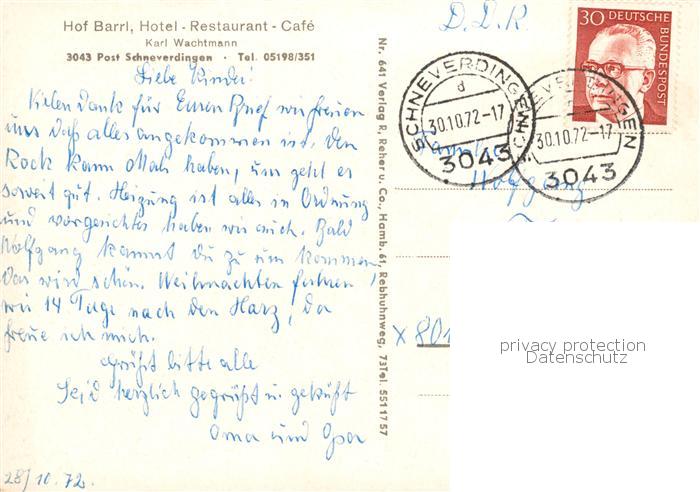 Hof Barrl, Hotel - Restaurant - Café
Karl Wachtmann
3043 Post Schneverdingen · Tel. 05198/351
Liebe Kinder!
Vielen Dank für Euren Brief wir freuen
uns daß alles angekommen ist. Den
Rock kann Olah haben, uns geht es
soweit gut. Heizung ist alles in Ordnung
und vorgerichtet haben wir auch. Bald
Wolfgang kannst du zu uns kommen.
Das wird schön. Weihnachten fahren
wir 14 Tage nach den Harz, da
freue ich mich.
Grüßt bitte alle
Seid herzlich gegrüßt u. geküßt
Oma und Opa
28/10.72.
Nr. 641 Verlag R. Reher u. Co., Hamb. 61, Rebhuhnweg, 73 Tel. 5511757
D.D.R.
30 DEUTSCHE BUNDESPOST
SCHNEVERDINGEN
d
30.10.72-17
3043
SCHNEVERDINGEN
30.10.72-17
3043
Familie
Wolfgang
x 801
privacy protection
Datenschutz